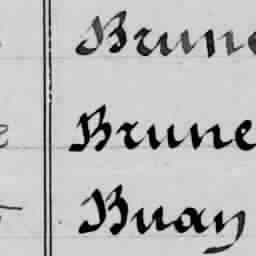 Brune
Brune
Buan